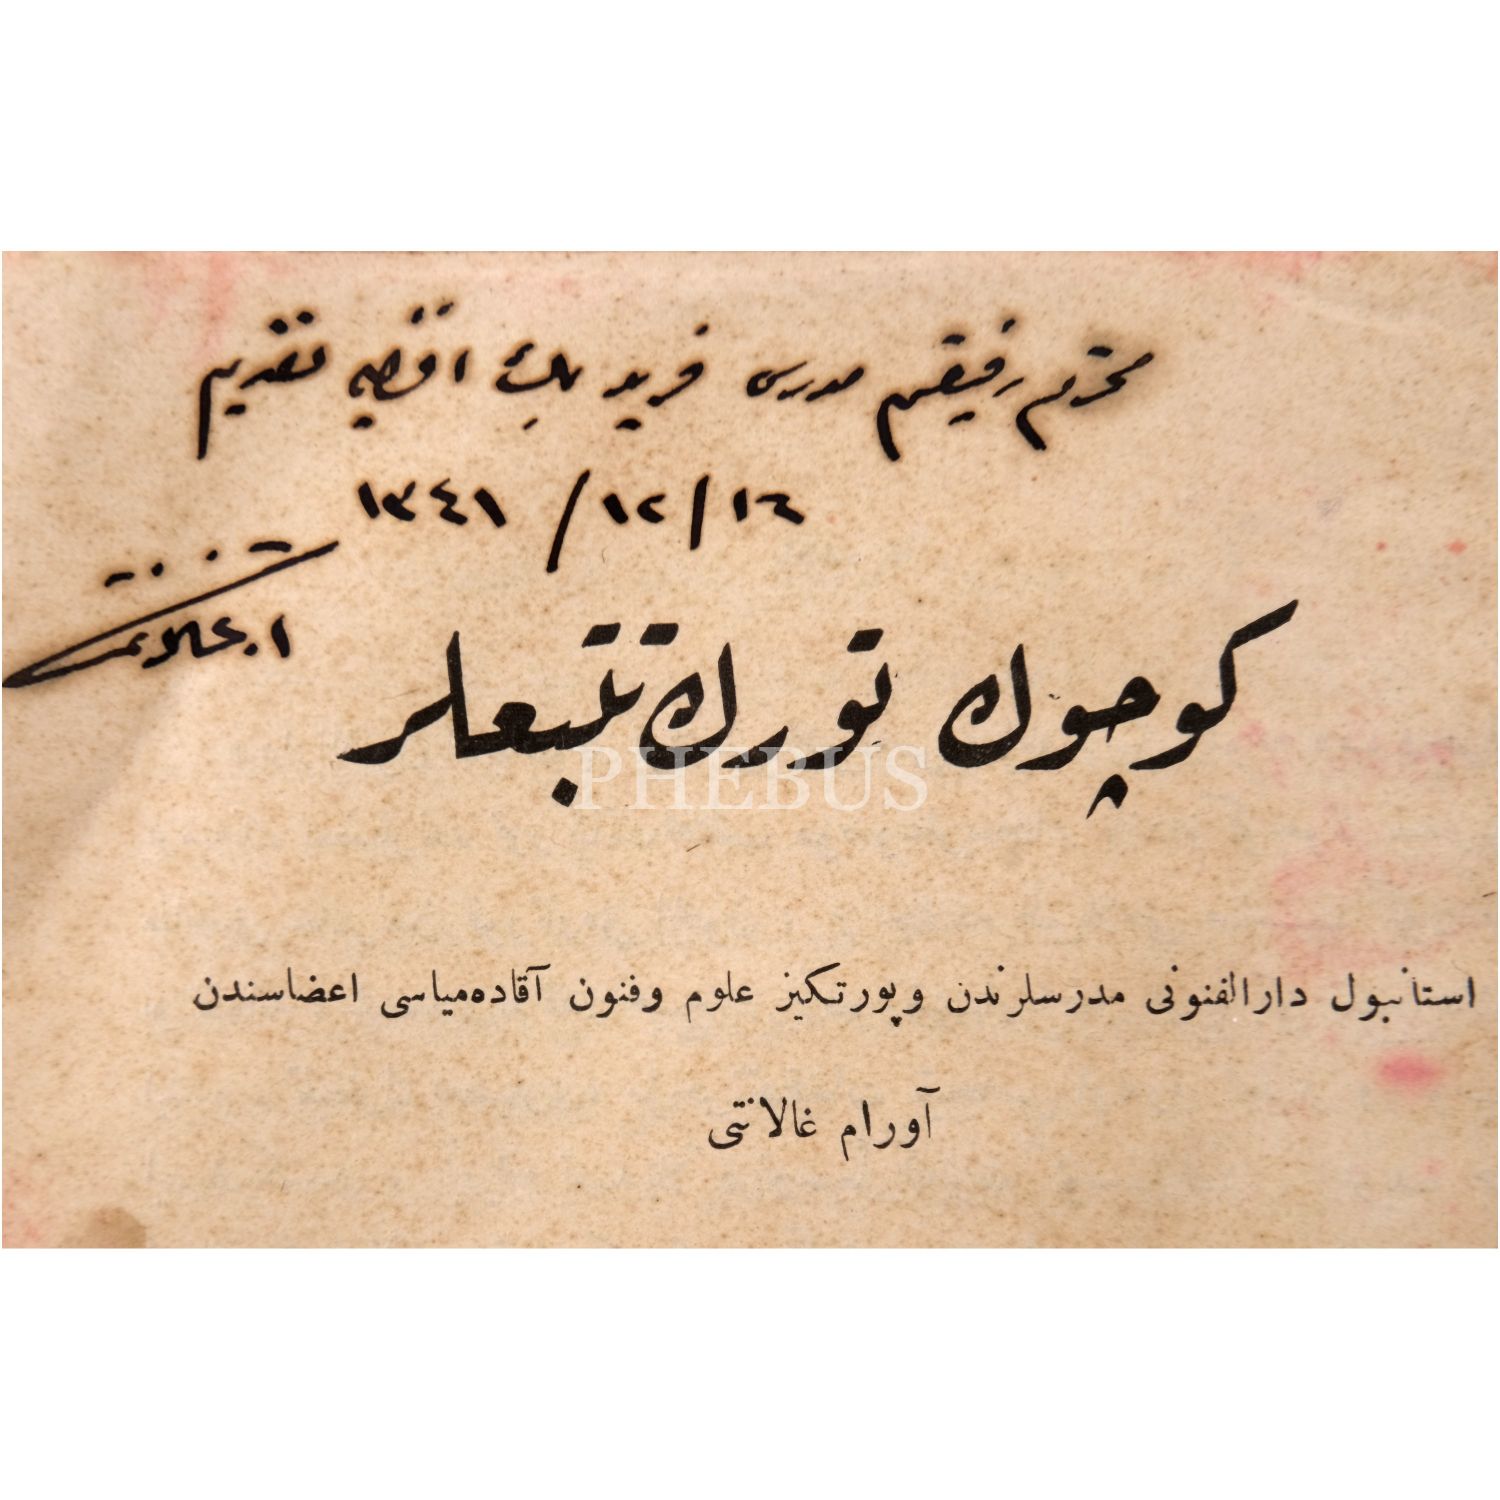 محترم رفیقم مدرس فرید بك افندی‌یه تقدیم
١٦/ ١٢/ ١٣٤١
ا. غالانتی
كوچوك تورك تتبعلر
PHEBUS
استانبول دارالفنونی مدرسلرندن وپورتكیز علوم وفنون آقاده‌میاسی اعضاسندن
آورام غالانتی